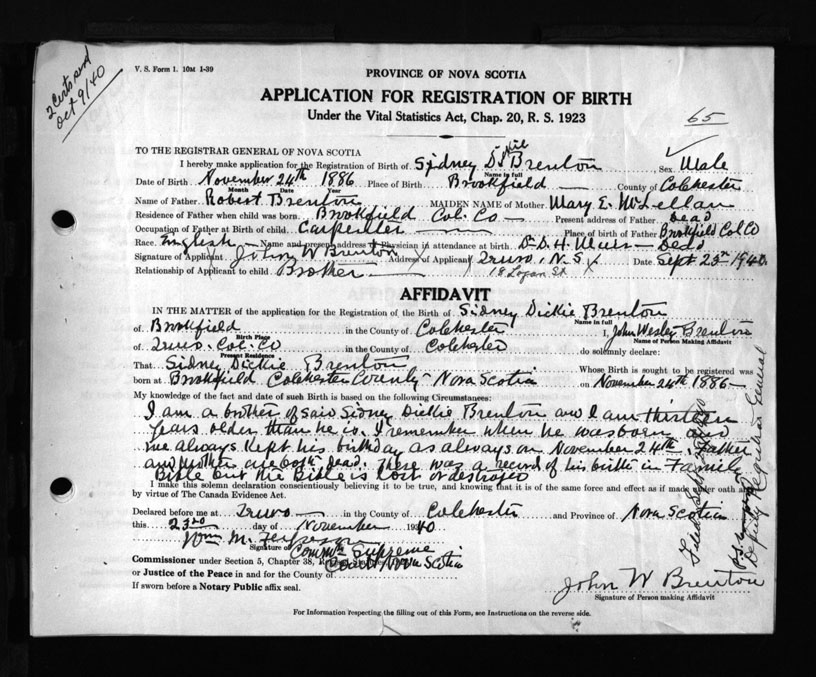 2 Certs
Oct 9/40
V. S. Form 1. 10M 1-39
PROVINCE OF NOVA SCOTIA
APPLICATION FOR REGISTRATION OF BIRTH
Under the Vital Statistics Act, Chap. 20, R. S. 1923
65
TO THE REGISTRAR GENERAL OF NOVA SCOTIA
I hereby make application for the Registration of Birth of Sidney Brenton, Sex Male
Name in full
Date of Birth November 24th 1886 Place of Birth Brookfield County of Colchester
Month Date Year
Name of Father Robert Brenton MAIDEN NAME of Mother Mary E. McLellan
Residence of Father when child was born Brookfield Col. Co Present address of Father Dead
Occupation of Father at Birth of child Carpenter Place of birth of Father Brookfield Col Co
Race English Name and present address of Physician in attendance at birth Dr D. H. Muir Dead
Signature of Applicant John W Brenton Address of Applicant Truro, N.S. Date Sept 23rd 1940
Relationship of Applicant to child Brother 18 Logan St
AFFIDAVIT
IN THE MATTER of the application for the Registration of the Birth of Sidney Dickie Brenton
Name in full
of Brookfield in the County of Colchester I, John Wesley Brenton
Birth Place Name of Person Making Affidavit
of Truro. Col. Co in the County of Colchester do solemnly declare:
Present Residence
That Sidney Dickie Brenton Whose Birth is sought to be registered was
born at Brookfield Colchester County Nova Scotia on November 24th 1886
My knowledge of the fact and date of such Birth is based on the following Circumstances:
I am a brother of said Sidney Dickie Brenton and I am thirteen
years older than he is. I remember when he was born and
we always kept his birthday as always on November 24th. Father
and Mother are both dead. There was a record of his birth in Family
Bible but the Bible is lost or destroyed
I make this solemn declaration conscientiously believing it to be true, and knowing that it is of the same force and effect as if made under oath and
by virtue of The Canada Evidence Act.
Declared before me at Truro in the County of Colchester and Province of Nova Scotia
this 23rd day of November 1940
Wm M. Ferguson
Signature of Commr Supreme
Commissioner under Section 5, Chapter 38, Court Nova Scotia
or Justice of the Peace in and for the County of
If sworn before a Notary Public affix seal.
John W Brenton
Signature of Person making Affidavit
For Information respecting the filling out of this Form, see Instructions on the reverse side.
Deputy Registrar General